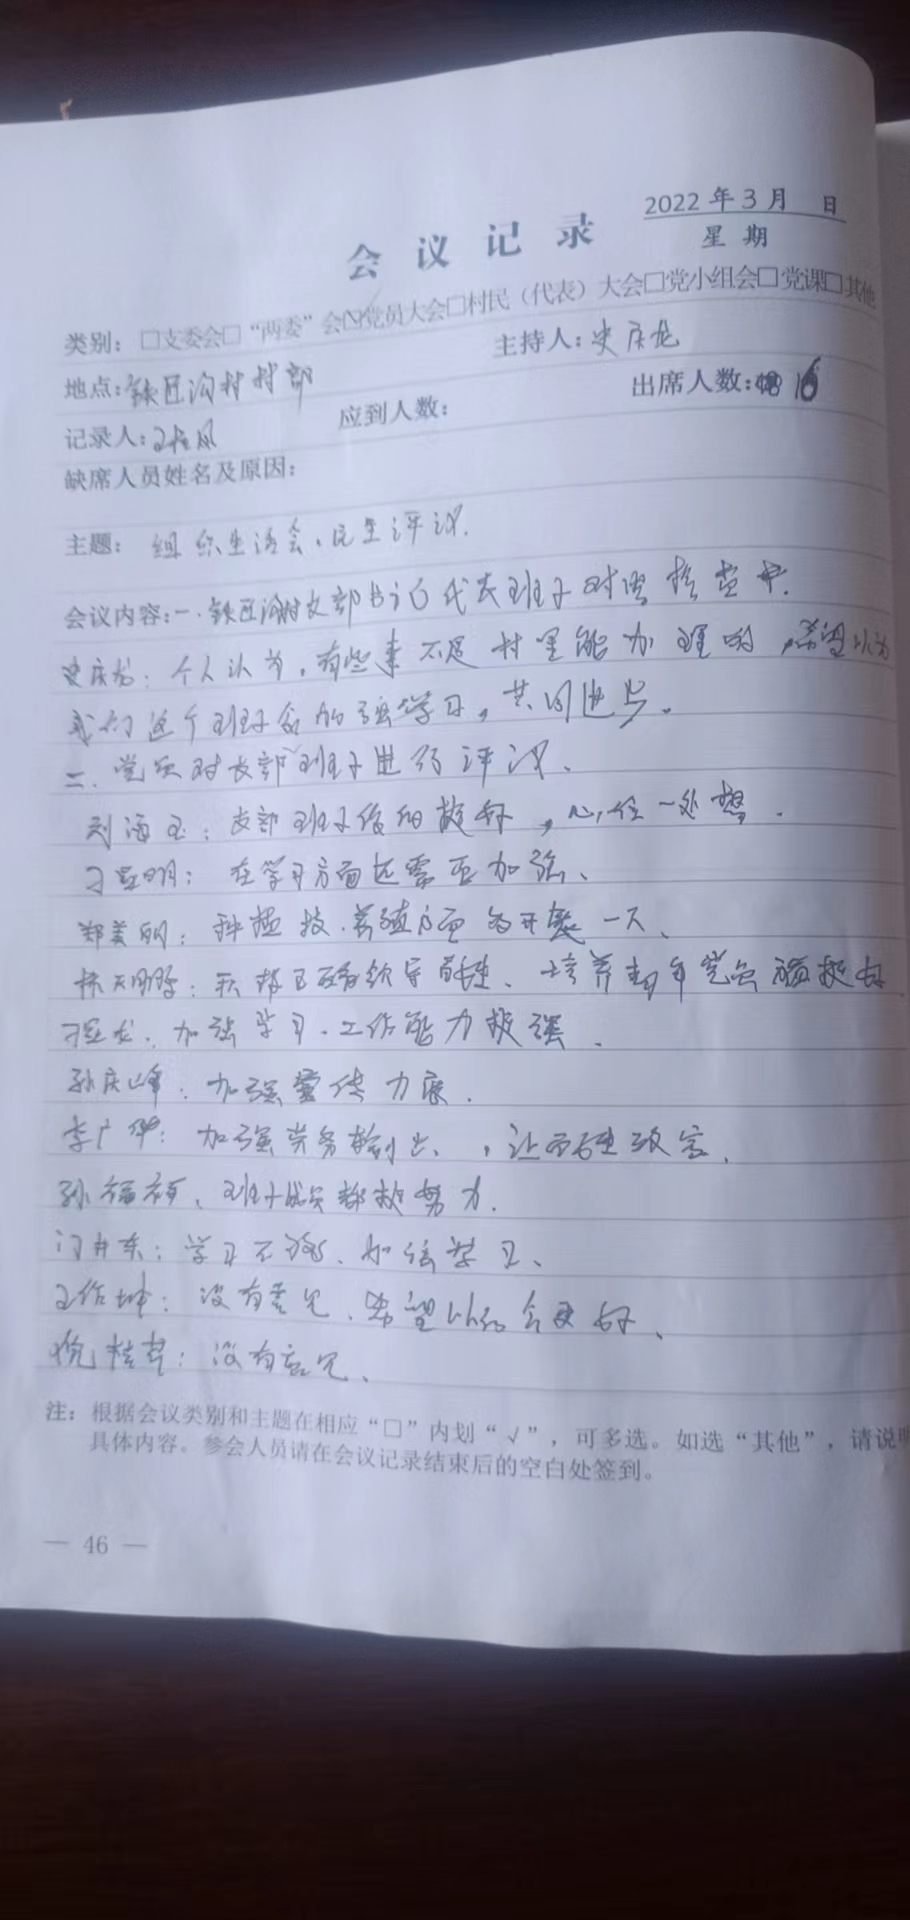 2022 年 3 月 日
会 议 记 录 星 期
类别：□支委会□“两委”会☑党员大会□村民（代表）大会□党小组会□党课□其他
地点：铁匠沟村村部 主持人：史庆龙
记录人： 应到人数： 出席人数：16
缺席人员姓名及原因：
主题：组织生活会、民主评议.
会议内容：一、铁匠沟村支部书记代表班子对照检查
史庆龙：个人认为，有些事不足村里能办理的，希望以为
我们这个班子名的强学习，共同进步。
二、党员对支部班子进行评议、
刘海玉：支部班子做的挺好，心往一处想.
明：在学习方面还需要加强、
郑美丽：种植技、养殖方面多开展一天、
培养青年党员 挺好
加强学习、工作能力较强、
孙庆峰、加强宣传力度.
李广华：加强劳务输出，让百姓致富、
孙福 、班子成员都挺努力.
门井东：学习不够、加强学习、
王作坤：没有意见、希望以后会更好、
桂芹：没有意见、
注：根据会议类别和主题在相应“□”内划“√”，可多选。如选“其他”，请说明
具体内容。参会人员请在会议记录结束后的空白处签到。
— 46 —